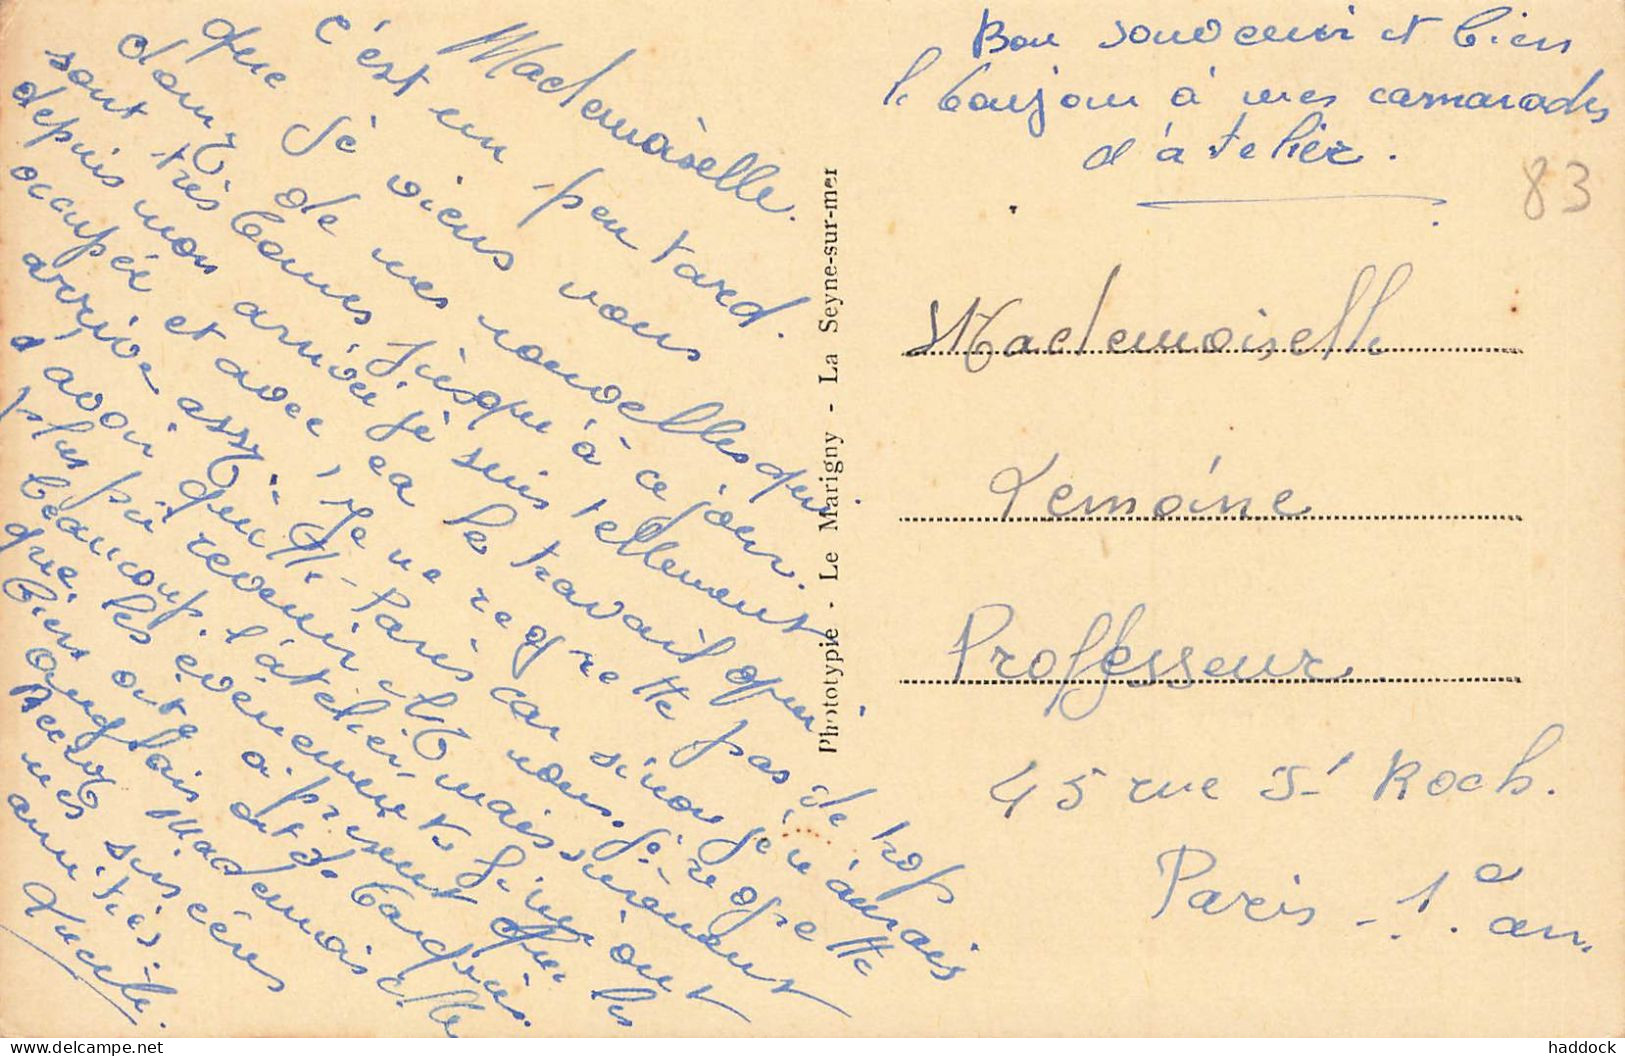 Mademoiselle.
C'est un peu tard.
que je viens vous
donnez de mes nouvelles qui
sont très bonnes jusqu'à ce jour.
depuis mon arrivée je suis tellement
occupée et avec ça le travail qui
arrive assez. Je ne regrette pas de trop
d'avoir quitte Paris car sinon je n'aurais
plus pu revenir chez vous. Je regrette
beaucoup. l'atelier, mais sûrement
que les évènements
bien à présent que les
anglais ont
Recevez Mademoiselle
mes sincères
amitiés.
Lucile.
Bon souvenir et bien
le bonjour à mes camarades
d'atelier.
83
Phototypie - Le Marigny - La Seyne-sur-mer
Mademoiselle
Lemoine
Professeur
45 rue St Roch.
Paris - 1. an
haddock